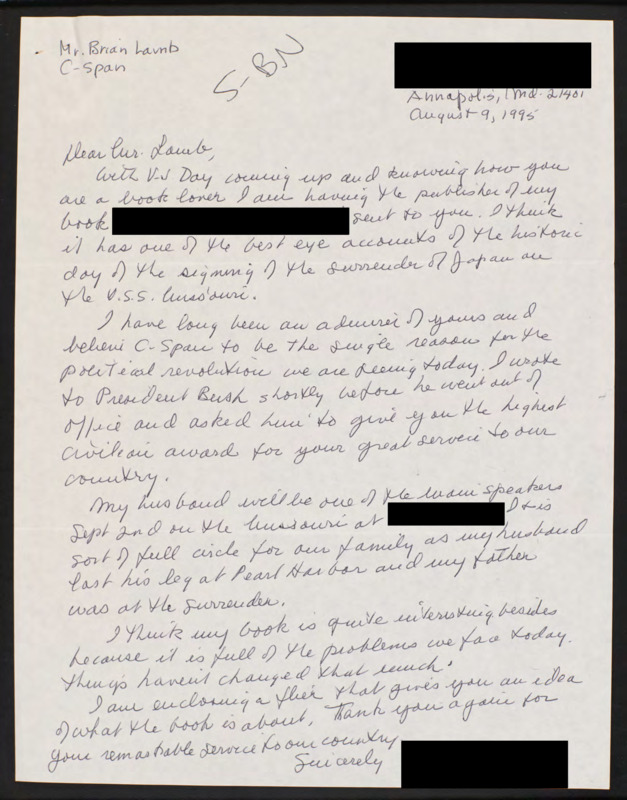 Mr. Brian Lamb
C-Span
S-BN
Annapolis, Md. 21401
August 9, 1995
Dear Mr. Lamb,
With V.J Day coming up and knowing how you
are a book lover I am having the publisher of my
book sent to you. I think
it has one of the best eye accounts of the historic
day of the signing of the surrender of Japan on
the U.S.S. Missouri.
I have long been an admirer of yours and
believe C-Span to be the single reason for the
political revolution we are seeing today. I wrote
to President Bush shortly before he went out of
office and asked him to give you the highest
civilian award for your great service to our
country.
My husband will be one of the main speakers
Sept 2nd on the Missouri at It is
sort of full circle for our family as my husband
lost his leg at Pearl Harbor and my father
was at the surrender.
I think my book is quite interesting besides
because it is full of the problems we face today.
Things haven't changed that much.
I am enclosing a flier that gives you an idea
of what the book is about. Thank you again for
your remarkable service to our country
Sincerely